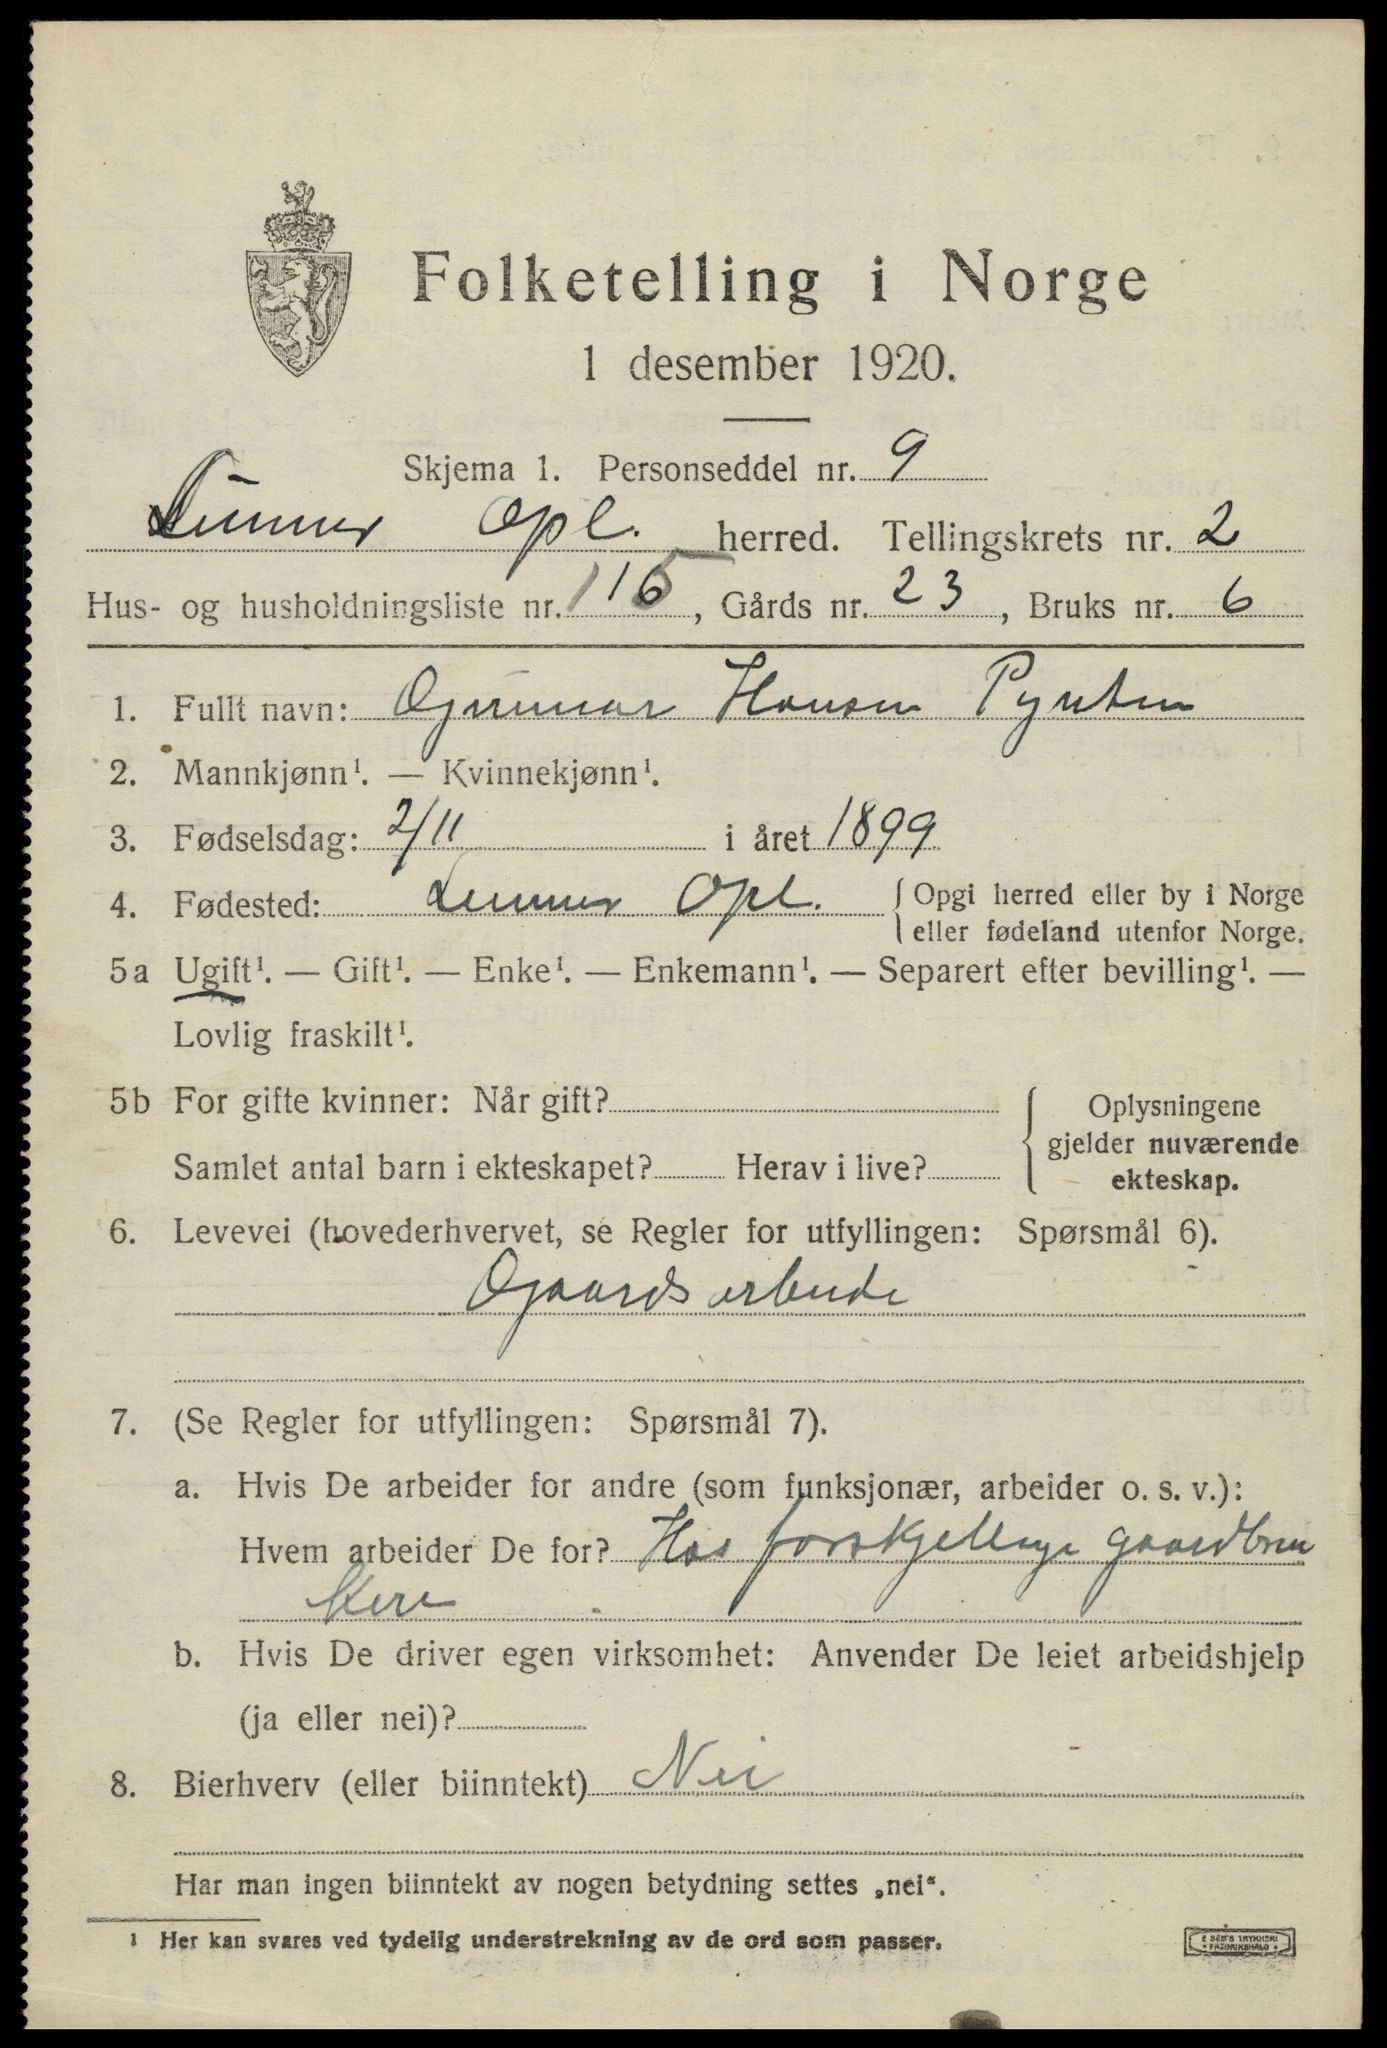 Folketelling i Norge
1 desember 1920.
Skjema 1. Personseddel nr. 9
Lunner Opl. herred. Tellingskrets nr. 2
Hus- og husholdningsliste nr. 115, Gårds nr. 23, Bruks nr. 6
1. Fullt navn: Gunnar Hansen Pynten
2. Mannkjønn¹. — Kvinnekjønn¹.
3. Fødselsdag: 2/11 i året 1899
4. Fødested: Lunner Opl. { Opgi herred eller by i Norge
eller fødeland utenfor Norge.
5a Ugift¹. — Gift¹. — Enke¹. — Enkemann¹. — Separert efter bevilling¹. —
Lovlig fraskilt¹.
5b For gifte kvinner: Når gift?
Samlet antal barn i ekteskapet? Herav i live?
{ Oplysningene
gjelder nuværende
ekteskap.
6. Levevei (hovederhvervet, se Regler for utfyllingen: Spørsmål 6).
Gaardsarbeide
7. (Se Regler for utfyllingen: Spørsmål 7).
a. Hvis De arbeider for andre (som funksjonær, arbeider o. s. v.):
Hvem arbeider De for? Hos forskjellige gaardbru
kere
b. Hvis De driver egen virksomhet: Anvender De leiet arbeidshjelp
(ja eller nei)?
8. Bierhverv (eller biinntekt) Nei
Har man ingen biinntekt av nogen betydning settes „nei“.
¹ Her kan svares ved tydelig understrekning av de ord som passer.
E SEM'S TRYKKERI
FREDRIKSHALD